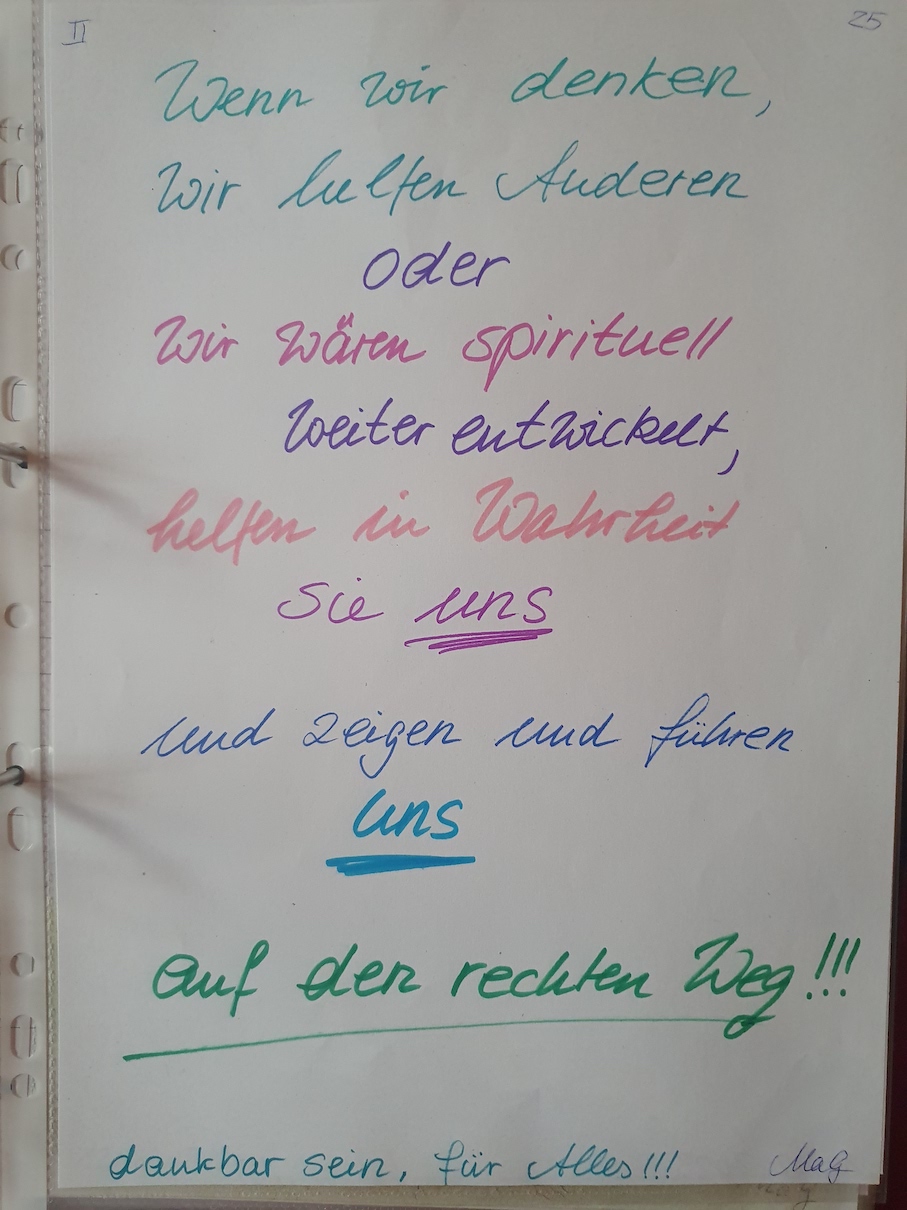 II
25
Wenn wir denken,
Wir helfen Anderen
oder
Wir wären spirituell
weiter entwickelt,
helfen in Wahrheit
Sie uns
und zeigen und führen
uns
auf den rechten Weg!!!
dankbar sein, für Alles!!!
MaG